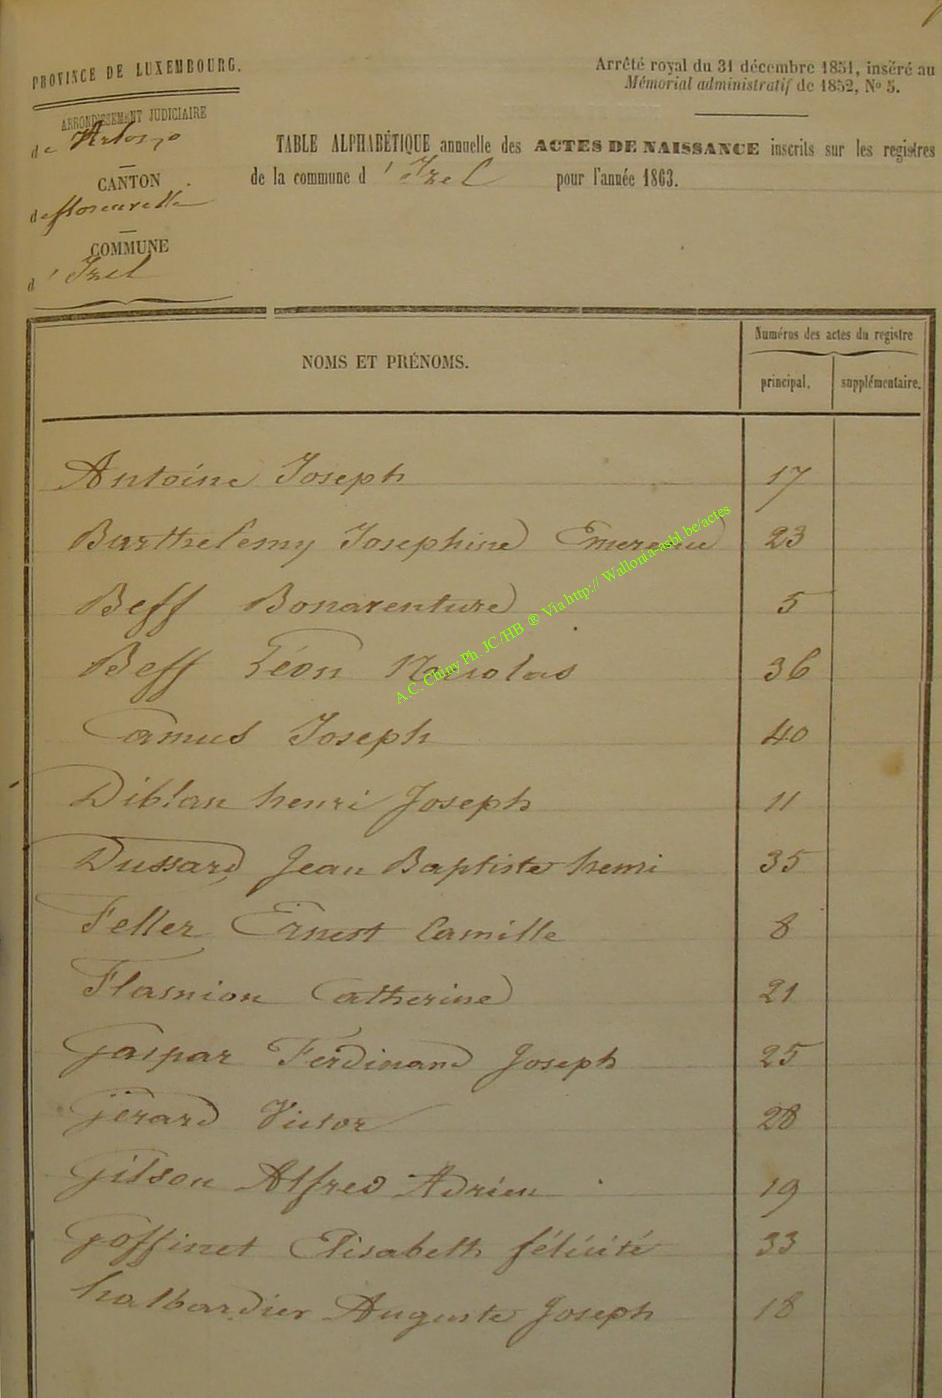 PROVINCE DE LUXEMBOURG.
ARRONDISSEMENT JUDICIAIRE
de Arlon
CANTON
de florenville
COMMUNE
d'Izel
Arrêté royal du 31 décembre 1851, inséré au
Mémorial administratif de 1852, No 5.
TABLE ALPHABÉTIQUE annuelle des ACTES DE NAISSANCE inscrits sur les registres
de la commune d'Izel pour l'année 1863.
NOMS ET PRÉNOMS.
Numéros des actes du registre
principal. supplémentaire.
Antoine Joseph 17
Barthelemy Josephine 23
Beff Bonaventure 5
Beff Léon Nicolas 36
Camus Joseph 40
Diblan henri Joseph 11
Dussard Jean Baptiste henri 35
Feller Ernest Camille 8
Flasnion Catherine 21
Gaspar Ferdinand Joseph 25
Gérard Victor 28
Gilson Alfred Adrien 19
Goffinet Elisabeth félicité 33
halbardier Auguste Joseph 18
A.C. Chiny Ph. JC/HB ® Via http:// Wallonia-asbl.be/actes